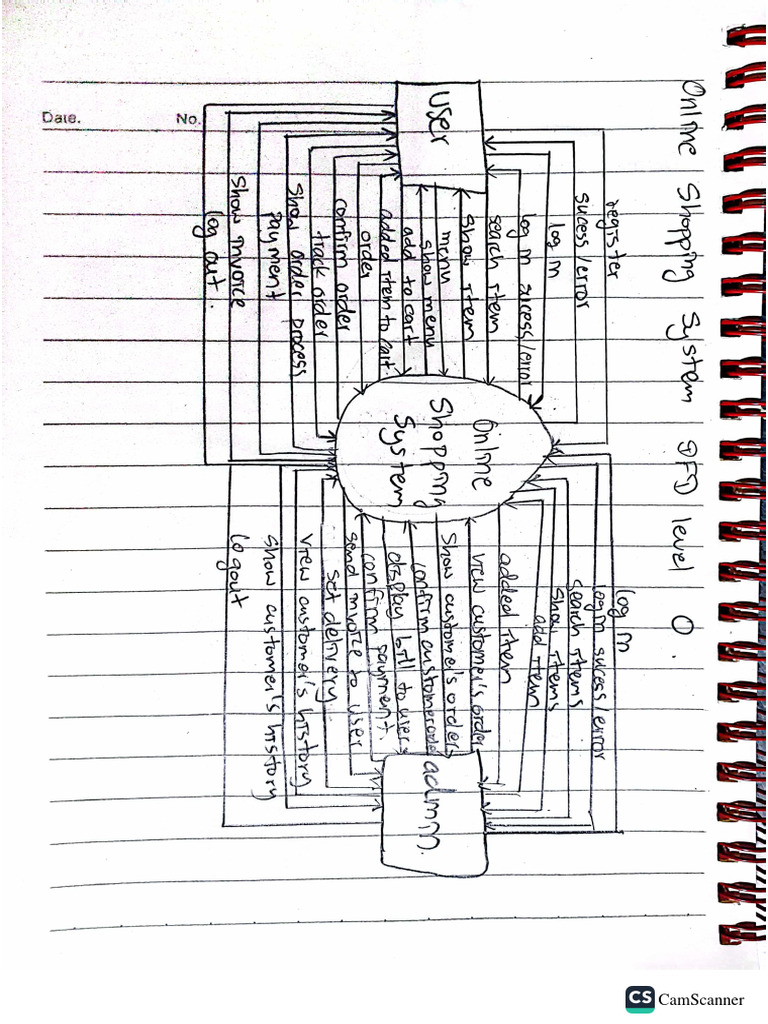 Online Shopping System DFD level 0.
Date.
No.
User
register
sucess/error
log in
log in sucess/error
search item
show item
menu
show menu
add to cart
added item to cart.
order
confirm order
track order
show order process
payment
show invoice
log out.
Online
Shopping
System
log in
log in sucess/error
search items
show items
add item
added item
view customer's order
show customer's orders
confirm customer order
display bill to users
confirm payment.
send invoice to user
set delivery
view customer's history
show customer's history
logout
admin.
CS CamScanner